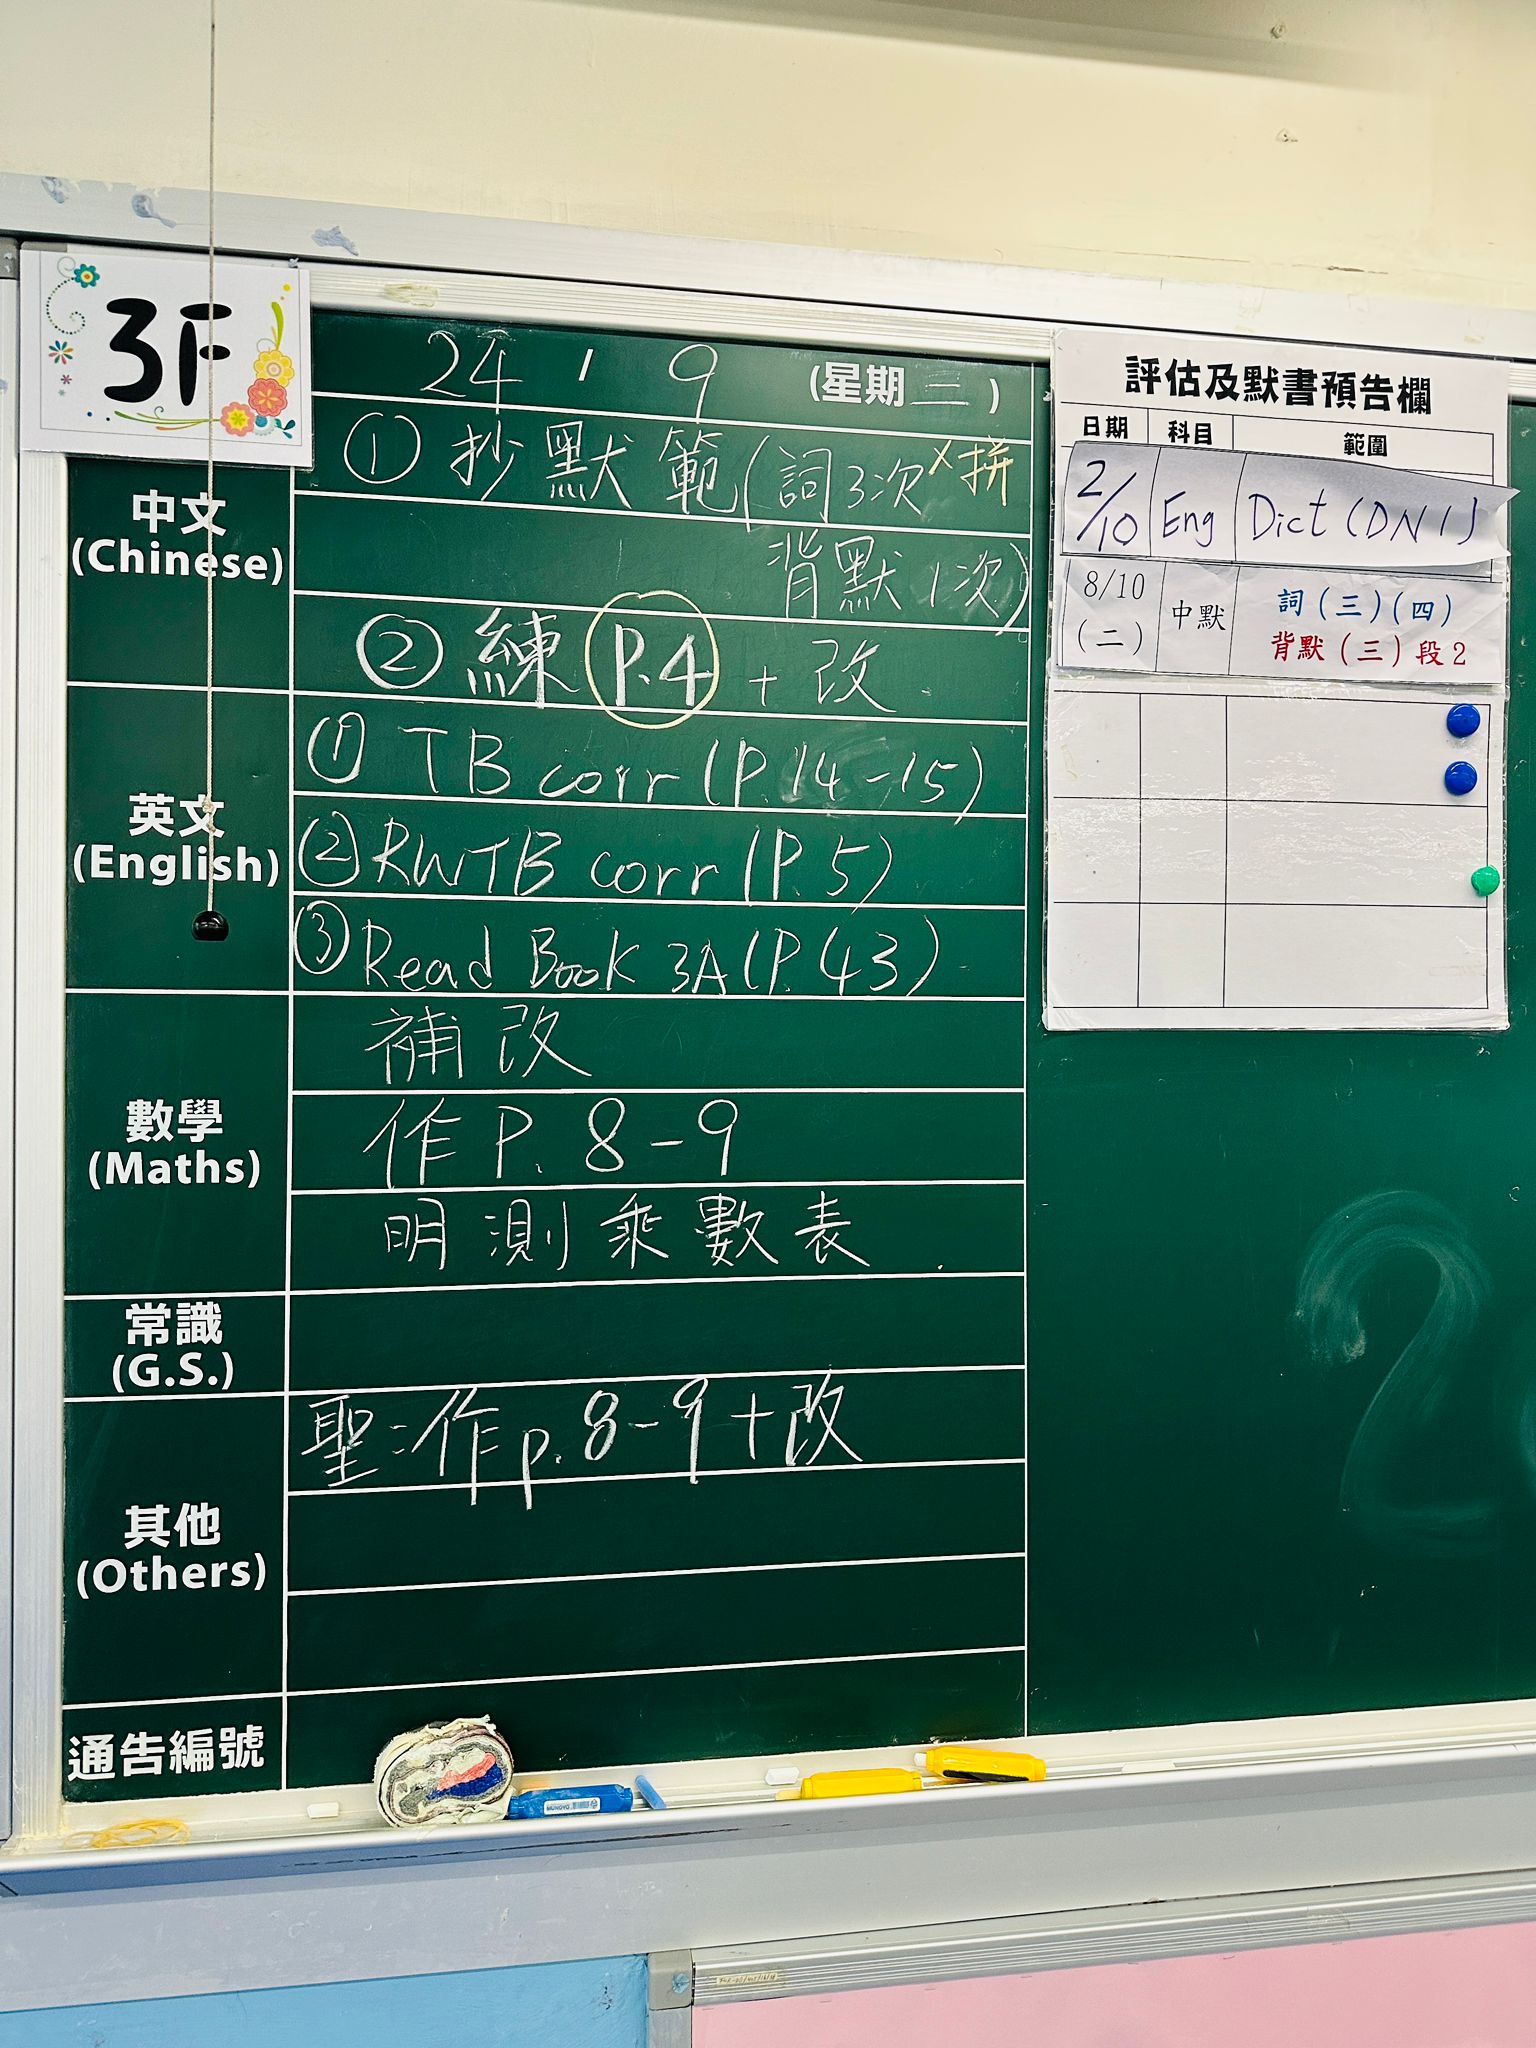 3F
24 / 9 (星期二)
中文
(Chinese)
① 抄默範(詞3次 ×拼
背默1次)
② 練 P.4 + 改
英文
(English)
① TB corr (P.14-15)
② RWTB corr (P.5)
③ Read Book 3A (P.43)
數學
(Maths)
補改
作 P. 8-9
明測乘數表
常識
(G.S.)
其他
(Others)
聖:作p.8-9+改
通告編號
評估及默書預告欄
日期 科目 範圍
2/10 Eng Dict (DN1)
8/10 (二) 中默 詞(三)(四)
背默(三)段2
MUNGYO